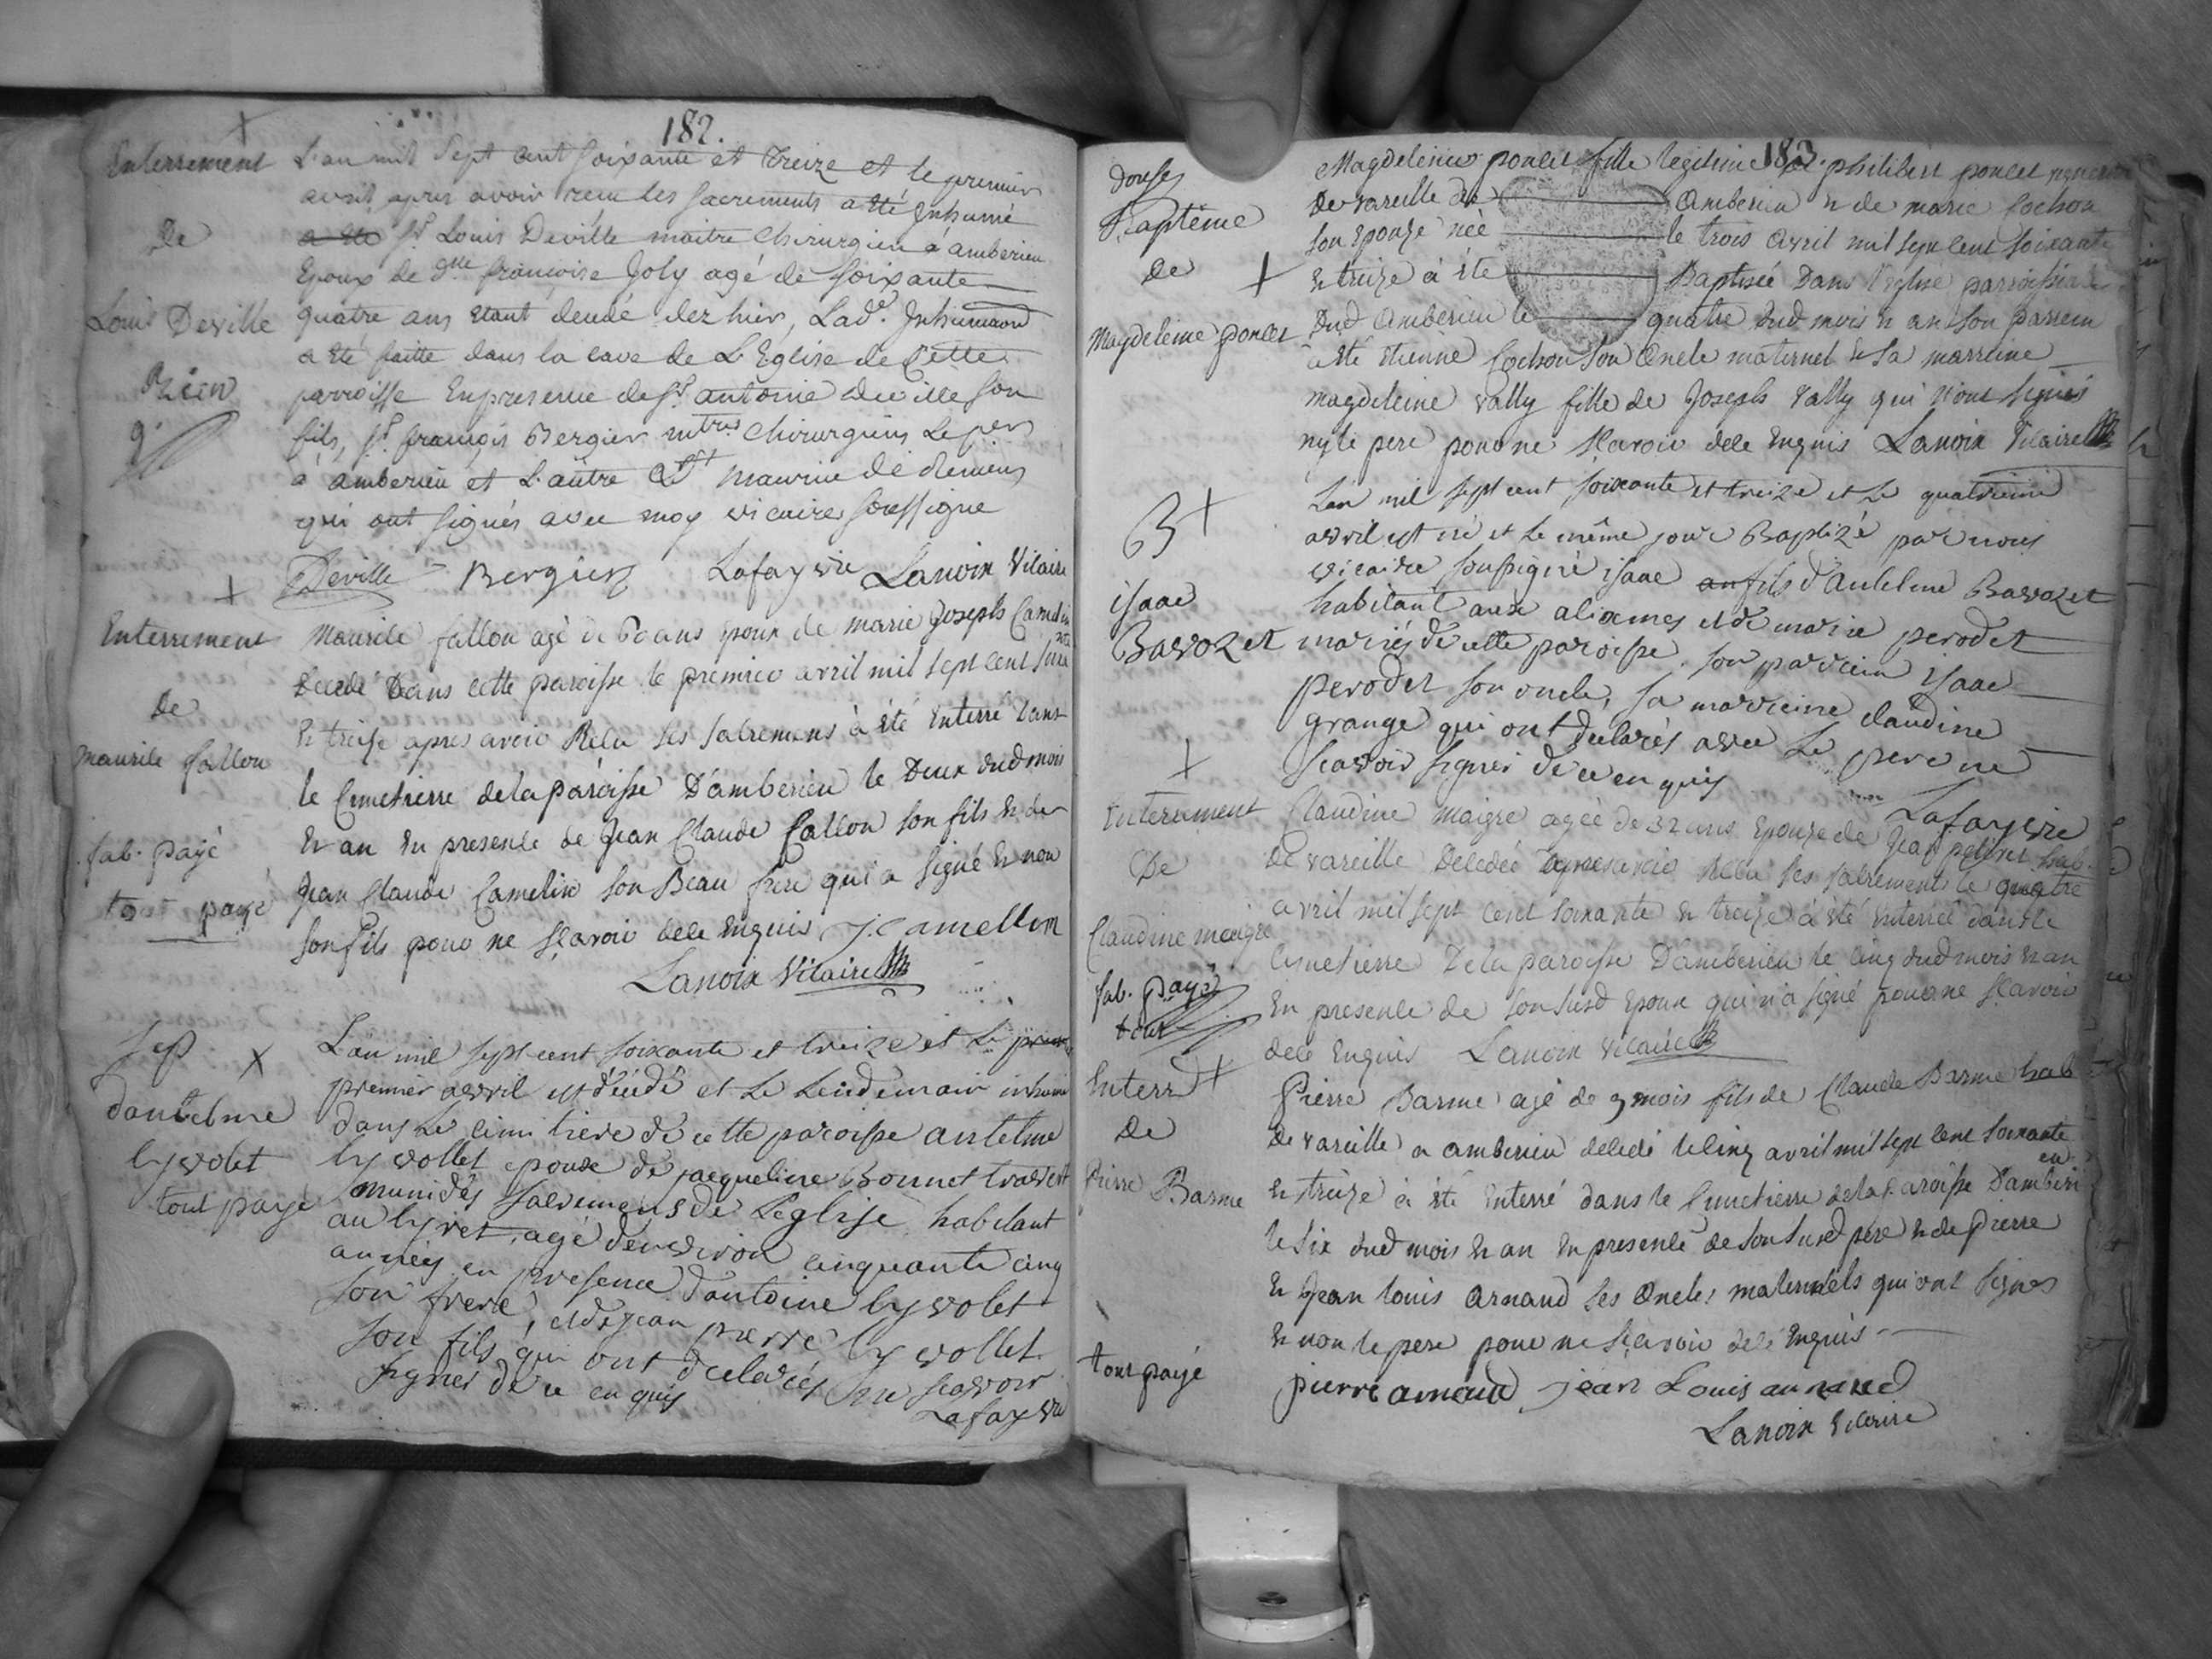 182.
Enterrement
De
Louis Deville
Rien
L'an mil sept cent soixante et treize et le premier
avril apres avoir recu les sacrements a eté Inhumé
a eté Sr. Louis Deville maitre chirurgien à amberieu
Epoux de dlle françoise Joly agé de soixante
quatre ans etant decedé dez hier, Lade. Inhumaon
a eté faitte dans la cave de L'Eglise de Cette
parroisse En presence de Sr. antoine Deville son
fils, Sr. françois Bergier mtres chirurgiens Le per
à amberieu et L'autre a St maurice de Remens
qui ont signés avec moy vicaire soussigne
Deville Bergier Lafay vre Lanoix Vicaire
Enterrement
De
maurile fallon
fab. payé
tout payé
Maurile fallon agé de 60 ans Epoux de marie Joseph Camelin
Decedé Dans cette paroisse le premier avril mil sept cent soixa
Et treise apres avoir Recu ses sacremens à été Enterré Dans
le Cimetierre de la paroisse D'amberieu le Deux dud mois
Et an En presence de Jean Claude fallon son fils Et de
Jean Claude Camelin son Beau frere qui a signé Et non
son fils pour ne sçavoir dece Enquis J. Camellin
Lanoix Vicaire
Sep
dantelme
lyvolet
tout payé
L'an mil sept cent soixante et treize et Le prem
premier avril est décédé et Le Lendemain inhumé
dans Le cimetiere de cette paroisse antelme
lyvollet epoux de jacqueline Bonnet travert
muni des sacremens de Leglise habitant
au lyvet, agé denviron cinquante cinq
années en presence dantoine lyvolet
son frere, et de jean pierre lyvollet
son fils qui ont déclarés ne scavoir
signer de ce en quis
Lafay vre
183.
Douse
Baptême
de
Magdeleine poncet
Magdeleine poncet fille legitime de philibert poncet
De vareille de Amberieu Et de marie Cochon
son Epouse née le trois avril mil sept cent soixante
Et treize à été Baptisée Dans l'Eglise parroissiale
Dud Amberieu le quatre dud mois Et an son parrein
à été Etienne Cochon son Oncle maternel Et sa marreine
magdeleine vally fille de Joseph vally qui n'ont signés
ny le pere pour ne sçavoir dece Enquis Lanoix Vicaire
B
isaac
Bavozet
L'an mil sept cent soixante et treize et Le quatrieme
avril est né et Le même jour Baptizé par nous
vicaire soussigné isaac an fils d'Antelme Bavozet
habitant aux alixmes et de marie perodet
mariés de cette paroisse, son parrein isaac
perodet son oncle, sa marreine claudine
grange qui ont declarés avec Le pere ne
scavoir signer de ce en quis
Lafay vre
Enterrement
De
Claudine maigre
fab. payé
tout
Claudine maigre agée de 32 ans Epouse de Jean peysset hab.
de vareille Decedée apres avoir Recu ses sacrements le quatre
avril mil sept cent soixante Et treize à été Enterrée dans le
Cimetierre De la paroisse D'amberieu le cinq dud mois Et an
En presence de son susd Epoux qui n'a signé pour ne sçavoir
dece Enquis Lanoix vicaire
Enterr
De
Pierre Barme
tout payé
Pierre Barme agé de 3 mois fils de Claude Barme hab
de vareille a amberieu decedé le cinq avril mil sept cent soixante
Et treize à été Enterré dans le Cimetierre de la paroisse D'amberieu
le six dud mois Et an En presence de son susd pere Et de Pierre
Et Jean Louis Arnaud ses Oncles maternels qui ont signés
Et non le pere pour ne sçavoir dece Enquis
pierre arnaud jean Louis aunaud
Lanoix Vicaire